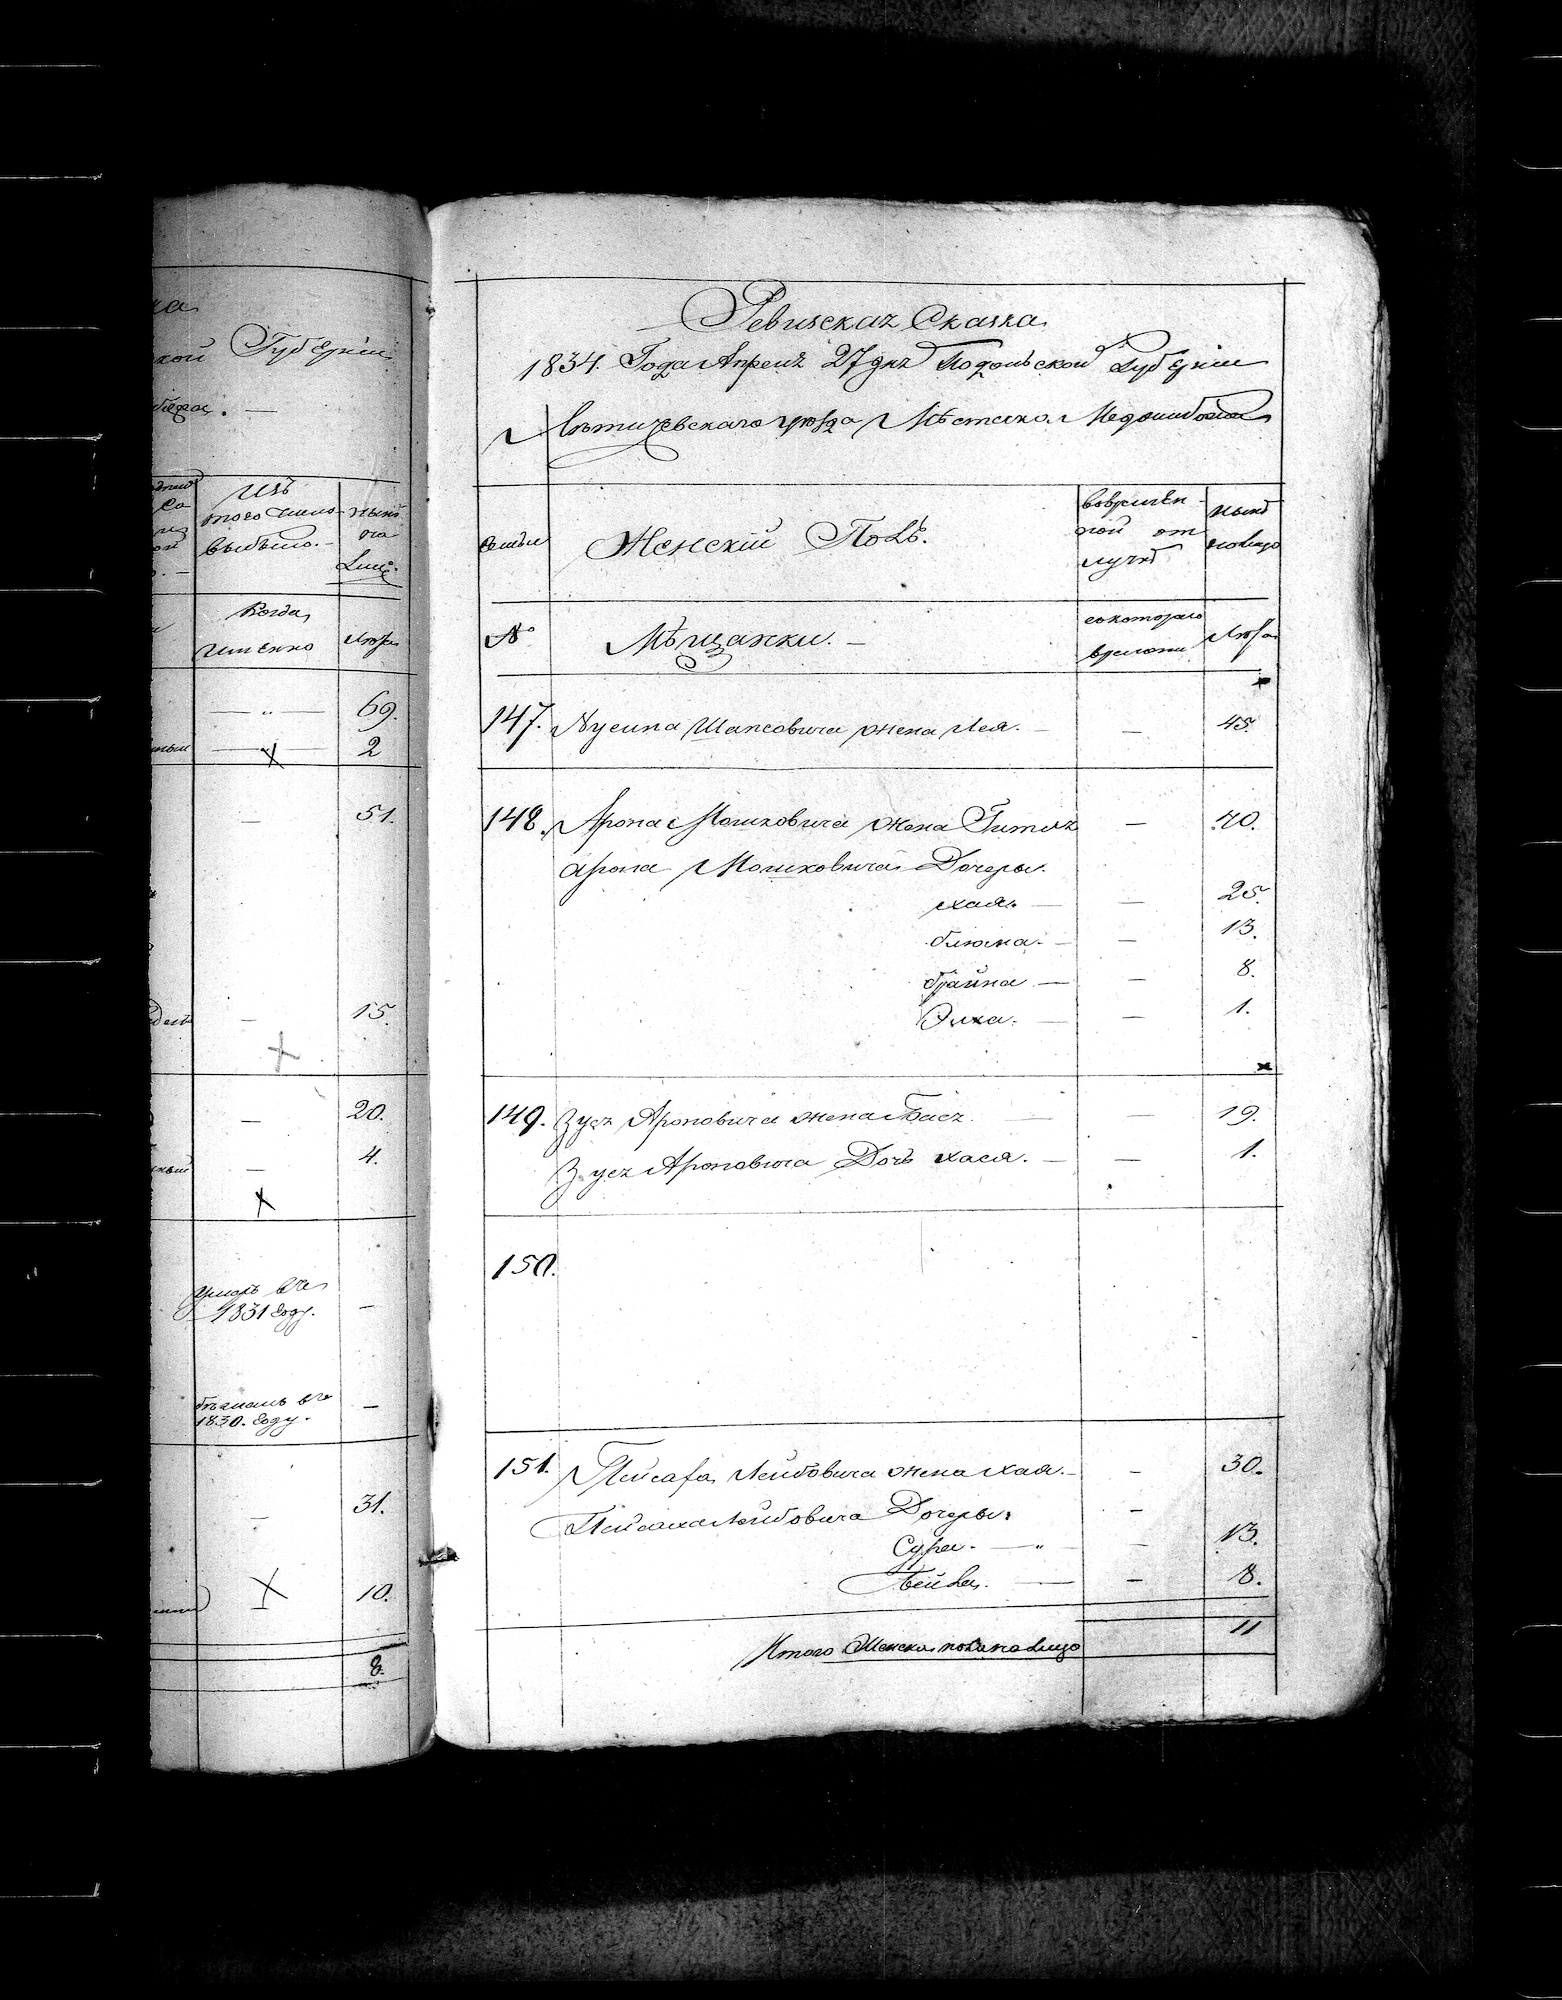 ка
кой Губернии
Изъ
того числа
выбыло.
ныне
на
лицо.
Когда
именно
Лета
69.
2
51.
15.
20.
4.
умеръ въ
1831 году.
въ
1830. году.
31.
10.
8.
Ревизская Сказка
1834. Года Апреля 27 дня Подольской Губернии
Летичевскаго уезда Местечка Меджибожа
Семьи
Женскій Полъ.
вовремен-
ной от
лучке
ныне
налицо
№
Мещанки.
скотораго
времени
Лета
147. Нусина Шапсовича жена Лея. — — 45.
148. Арона Мошковича жена Гитля — 40.
Арона Мошковича Дочеры.
хая. — — 25.
блюма. — — 13.
брайна — — 8.
Элка. — — 1.
149. Зуся Ароновича жена Бася — — 19.
Зуся Ароновича Дочь хася. — — 1.
150.
151. Пейсаха Лейбовича жена хая. — — 30.
Пейсаха Лейбовича Дочеры: —
Сура. — " — 13.
Бейла. — — 8.
Итого Женска пола налицо 11